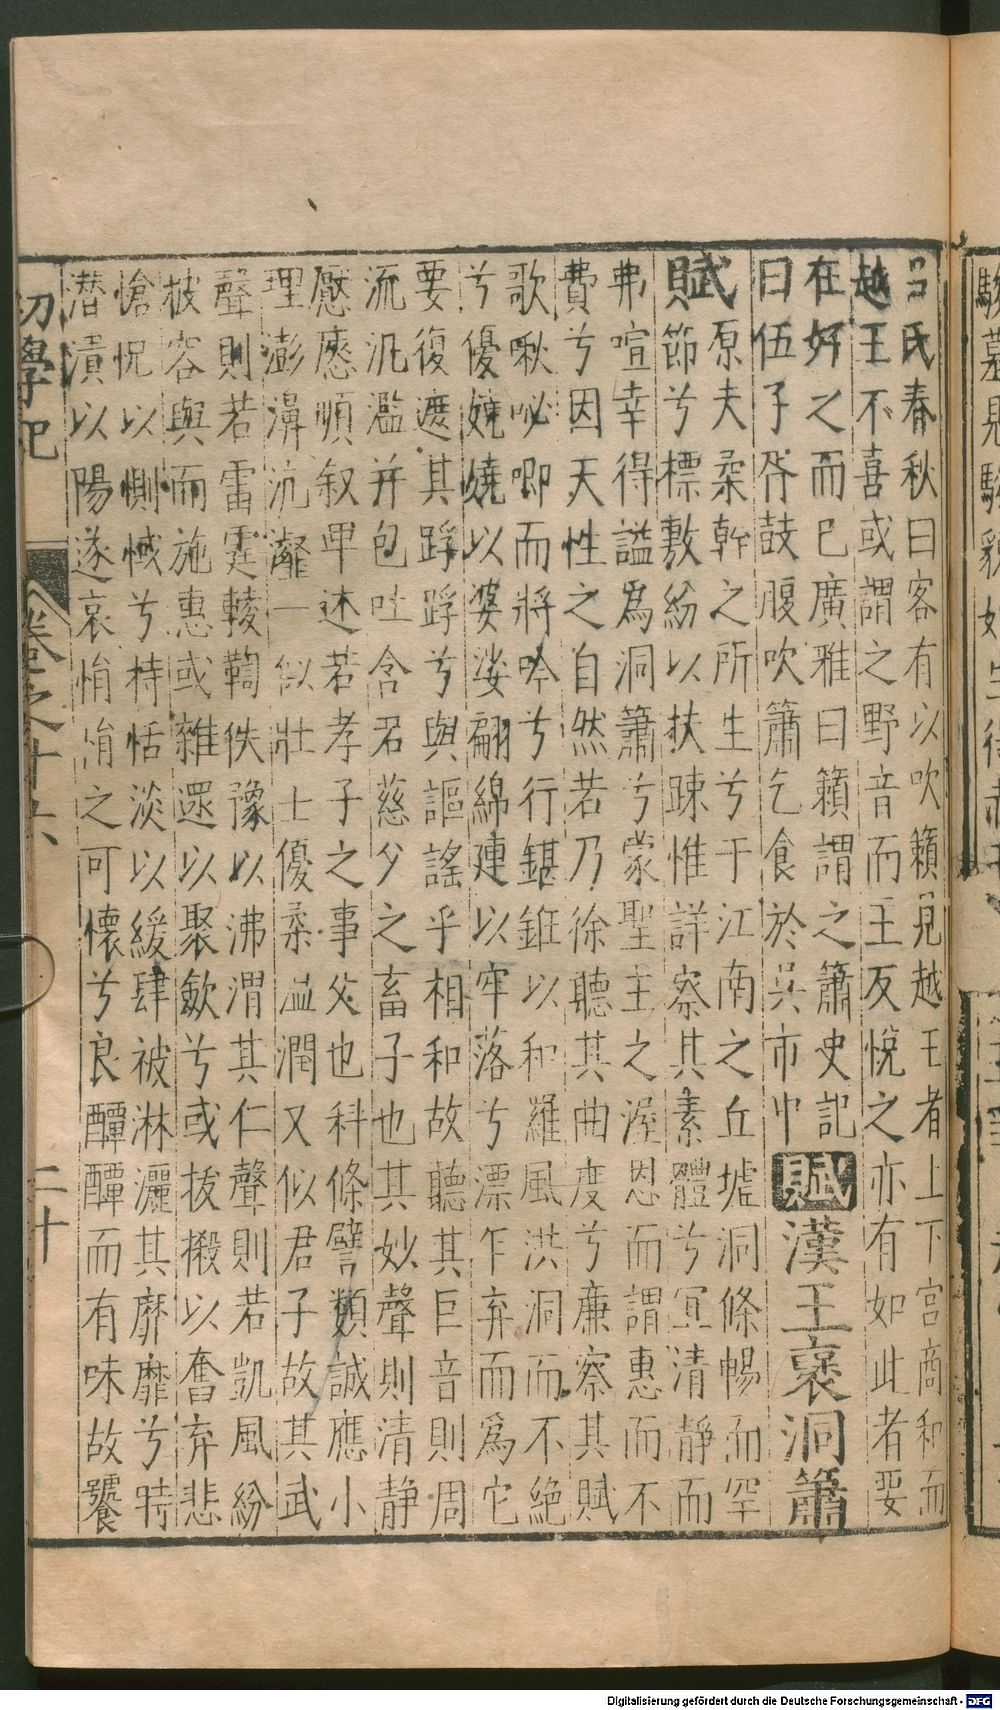 呂氏春秋曰客有以吹籟見越王者上下宮商和而
越王不喜或謂之野音而王反悅之亦有如此者要
在好之而已廣雅曰籟謂之簫史記
曰伍子胥鼓腹吹簫乞食於吳市中賦漢王襃洞簫
賦原夫柔幹之所生兮于江南之丘墟洞條暢而罕
節兮標敷紛以扶踈惟詳察其素體兮宜清靜而
弗喧幸得謚爲洞簫兮蒙聖主之渥恩而謂惠而不
費兮因天性之自然若乃徐聽其曲度兮廉察其賦
歌啾咇唧而將吟兮行鍖銋以和羅風洪洞而不絕
兮優嬈嬈以婆娑翩綿連以牢落兮漂乍弃而爲它
要復遮其蹊蹊兮與謳謠乎相和故聽其巨音則周
流汎濫并包吐含若慈父之畜子也其妙聲則清静
厭應順叙卑迖若孝子之事父也科條譬類誠應小
理澎濞沆瀣一似壯士優柔溫潤又似君子故其武
聲則若雷霆輘鞫佚豫以沸渭其仁聲則若凱風紛
披容與而施惠或雜遝以聚歛兮或拔搬以奮弃悲
愴怳以惻惐兮特恬淡以緩肆被淋灑其靡靡兮時
潜漬以陽遂哀悁悁之可懷兮良醰醰而有味故饕
初學記
卷之十六
二十
Digitalisierung gefördert durch die Deutsche Forschungsgemeinschaft - DFG